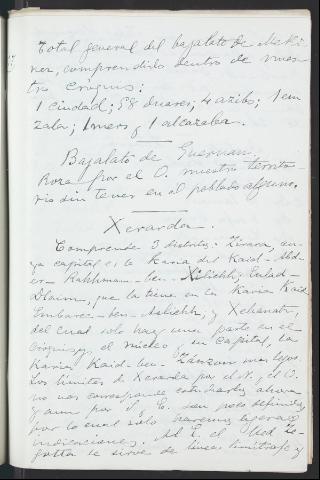 Total general del bajalato de Meki-
nez, comprendido dentro de nues-
tro croquis:
1 ciudad; 58 duares; 4 azibs; 1 em
zala; 1 mers y 1 alcazaba.
Bajalato de Gueruan.
Roza por el O. nuestro territo-
rio sin tener en el poblado alguno.
Xerarda.
Comprende 3 distritos: Zirara, cu-
ya capital es la Karia del Kaid-Abd-
er-Rahhman-ben- ; Ulad-
Dlaim, que la tiene en la Karia Kaid
Embarec-ben- ; y Xebanat,
del cual solo hay una parte en el
croquis, el núcleo, su capital, la
Karia Kaid-ben- mas lejos.
Los limites de Xerarda por el N. y el O.
no nos corresponde estudiarlos ahora
y aun por S. y E. son poco definidos
por lo cual solo haremos ligeras
indicaciones. Al E. el Ued Ze-
gotta le sirve de linea limitrofe y